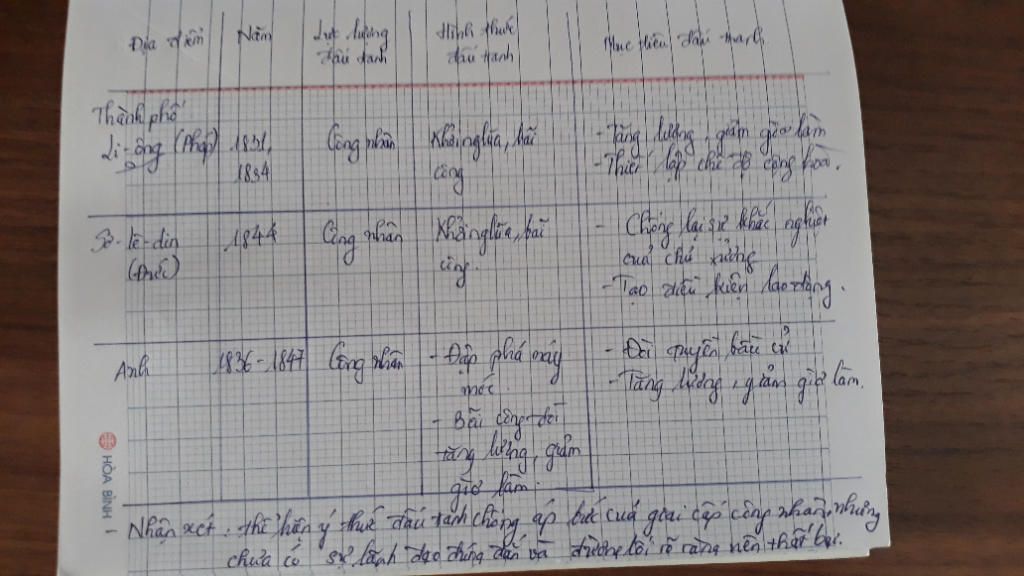 Địa điểm Năm Lực lượng Hình thức Mục tiêu đấu tranh
đấu tranh đấu tranh
Thành phố
Li-ông (Pháp) 1831, Công nhân Khởi nghĩa, bãi - Tăng lương, giảm giờ làm
1834 công - Thiết lập chế độ cộng hòa.
Sơ-lê-din 1844 Công nhân Khởi nghĩa, bãi - Chống lại sự khắc nghiệt
(Đức) công. của chủ xưởng
- Tạo điều kiện lao động.
Anh 1836-1847 Công nhân - Đập phá máy - Đòi quyền bầu cử
móc. - Tăng lương, giảm giờ làm.
- Bãi công đòi
tăng lương, giảm
giờ làm.
HÒA BÌNH
- Nhận xét: thể hiện ý thức đấu tanh chống áp bức của giai cấp công nhân, nhưng
chưa có sự lãnh đạo đúng đắn và đường lối rõ ràng nên thất bại.